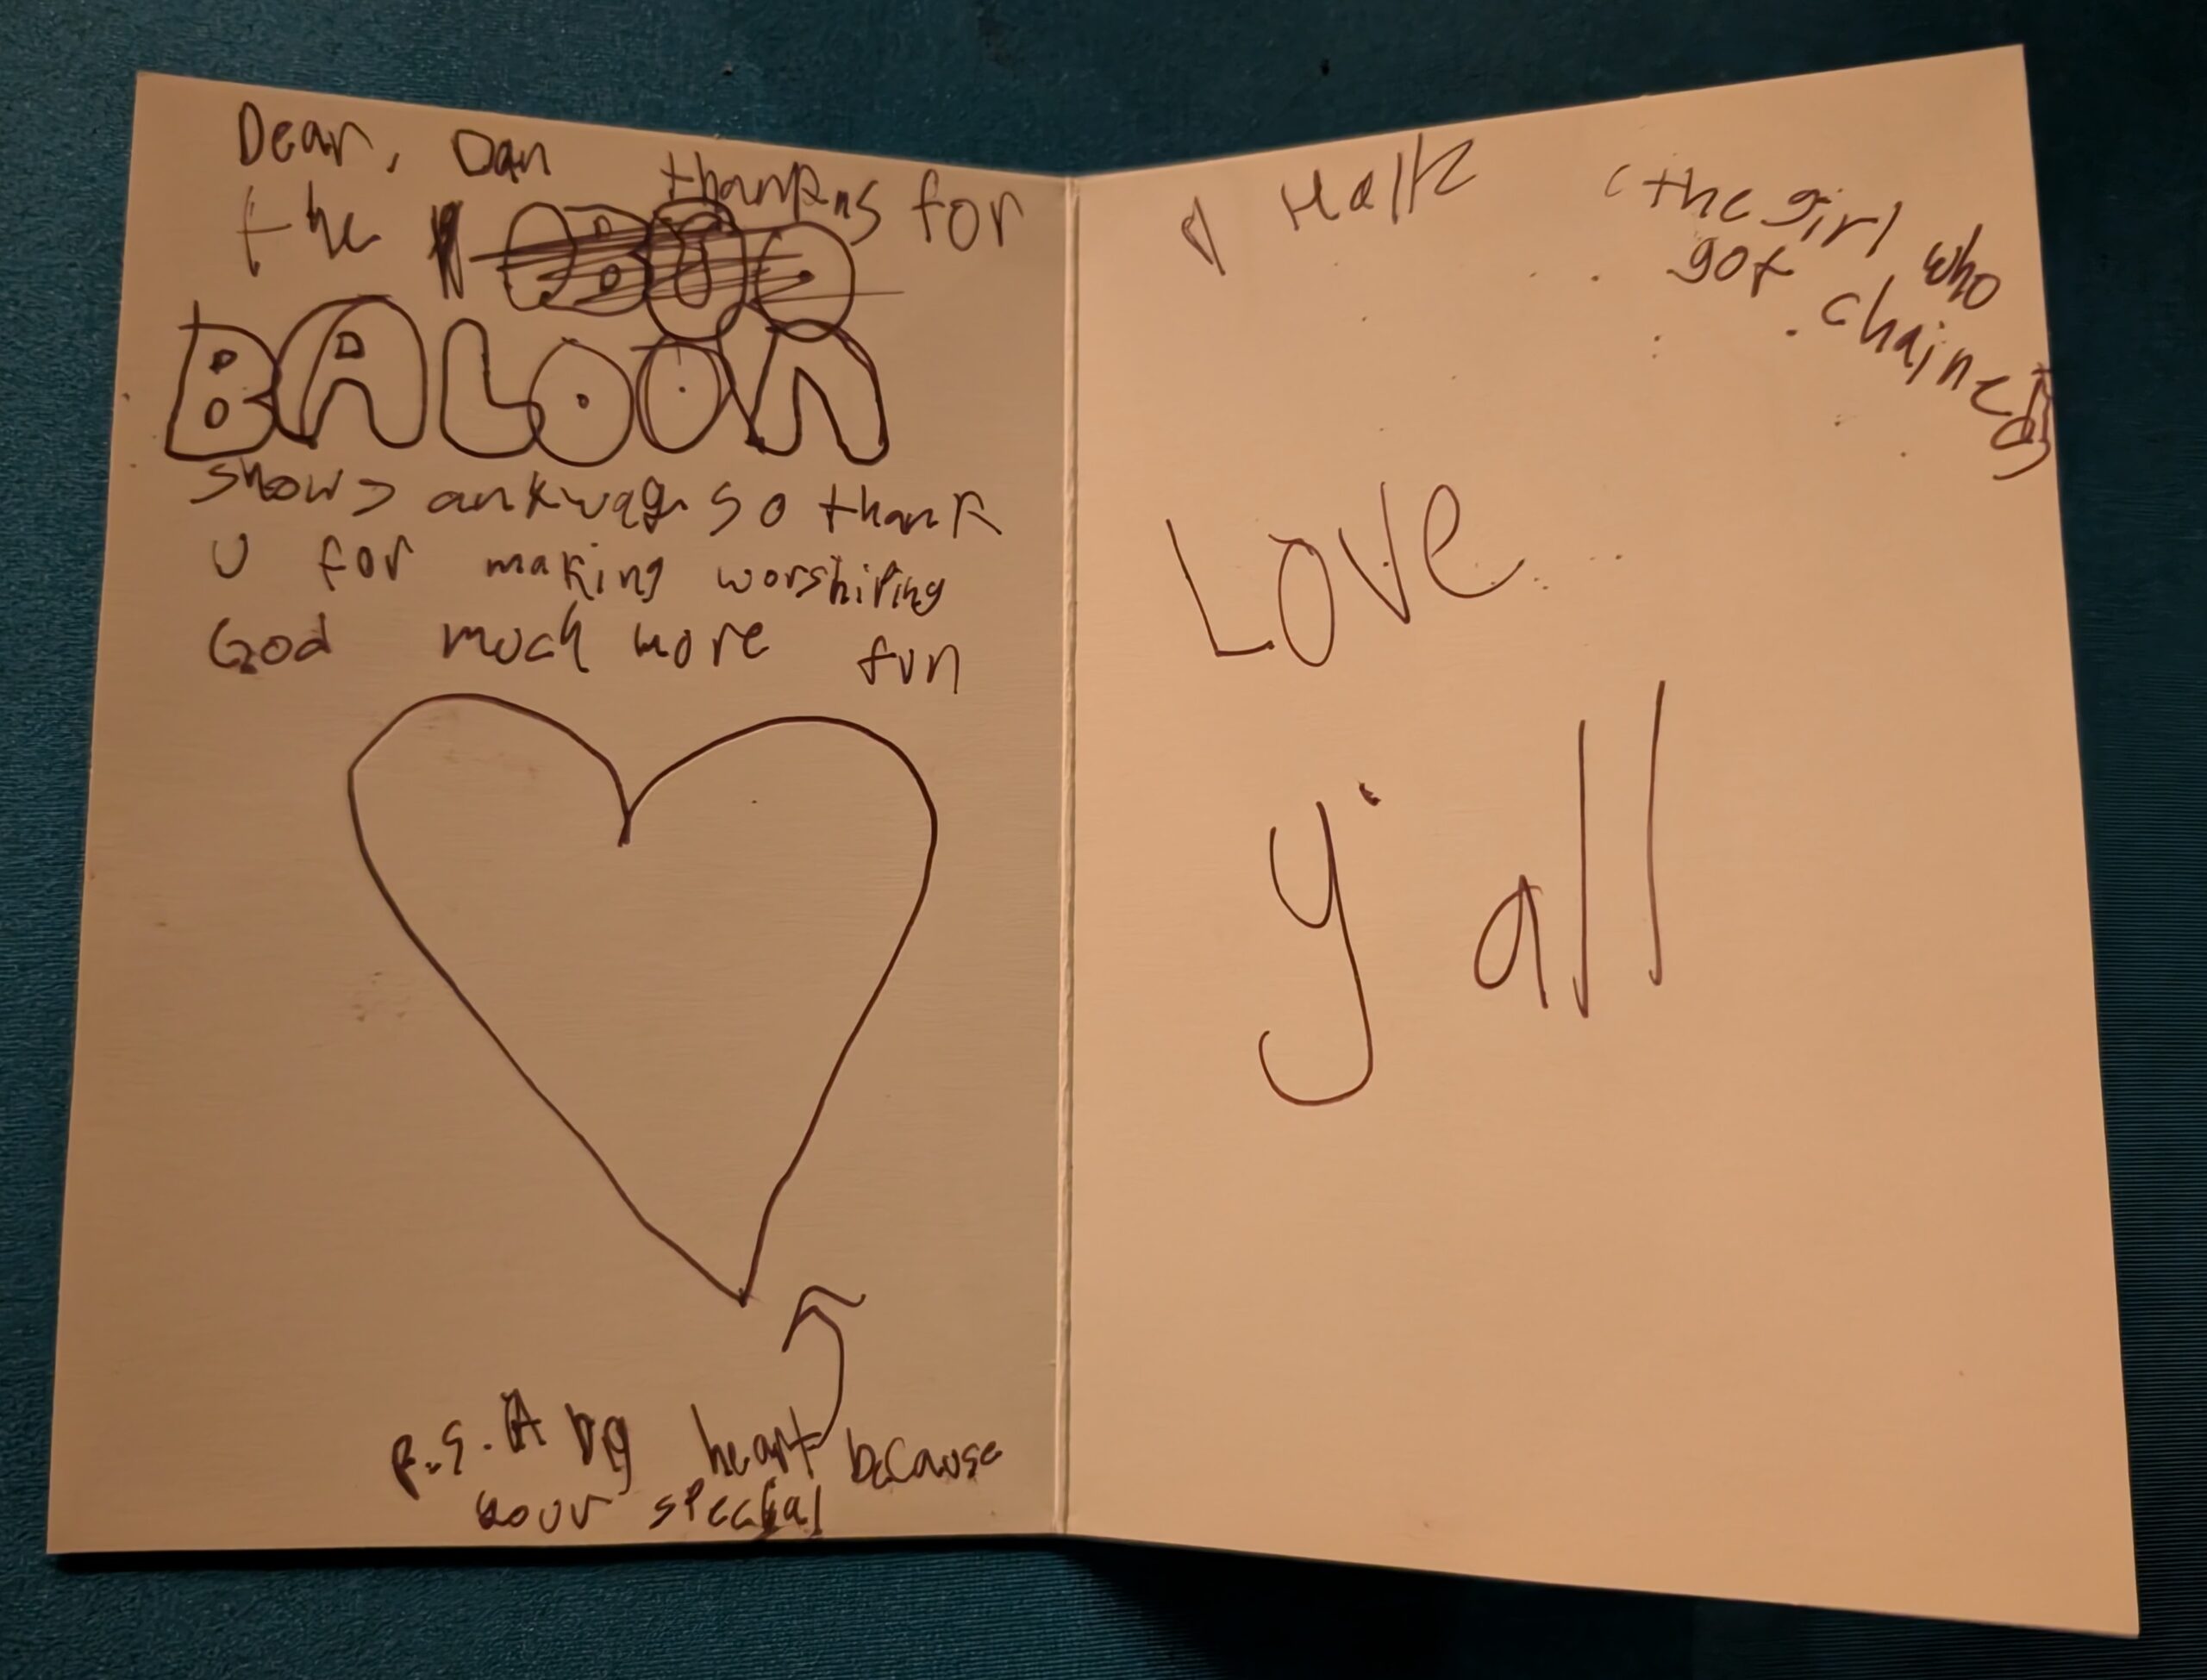 Dear, Dan
thanks for
the
BALOON
shows so thank
U for making worshiping
God much more fun
p.s. A big heart because
your special
(the girl who
got chained)
Love
y'all